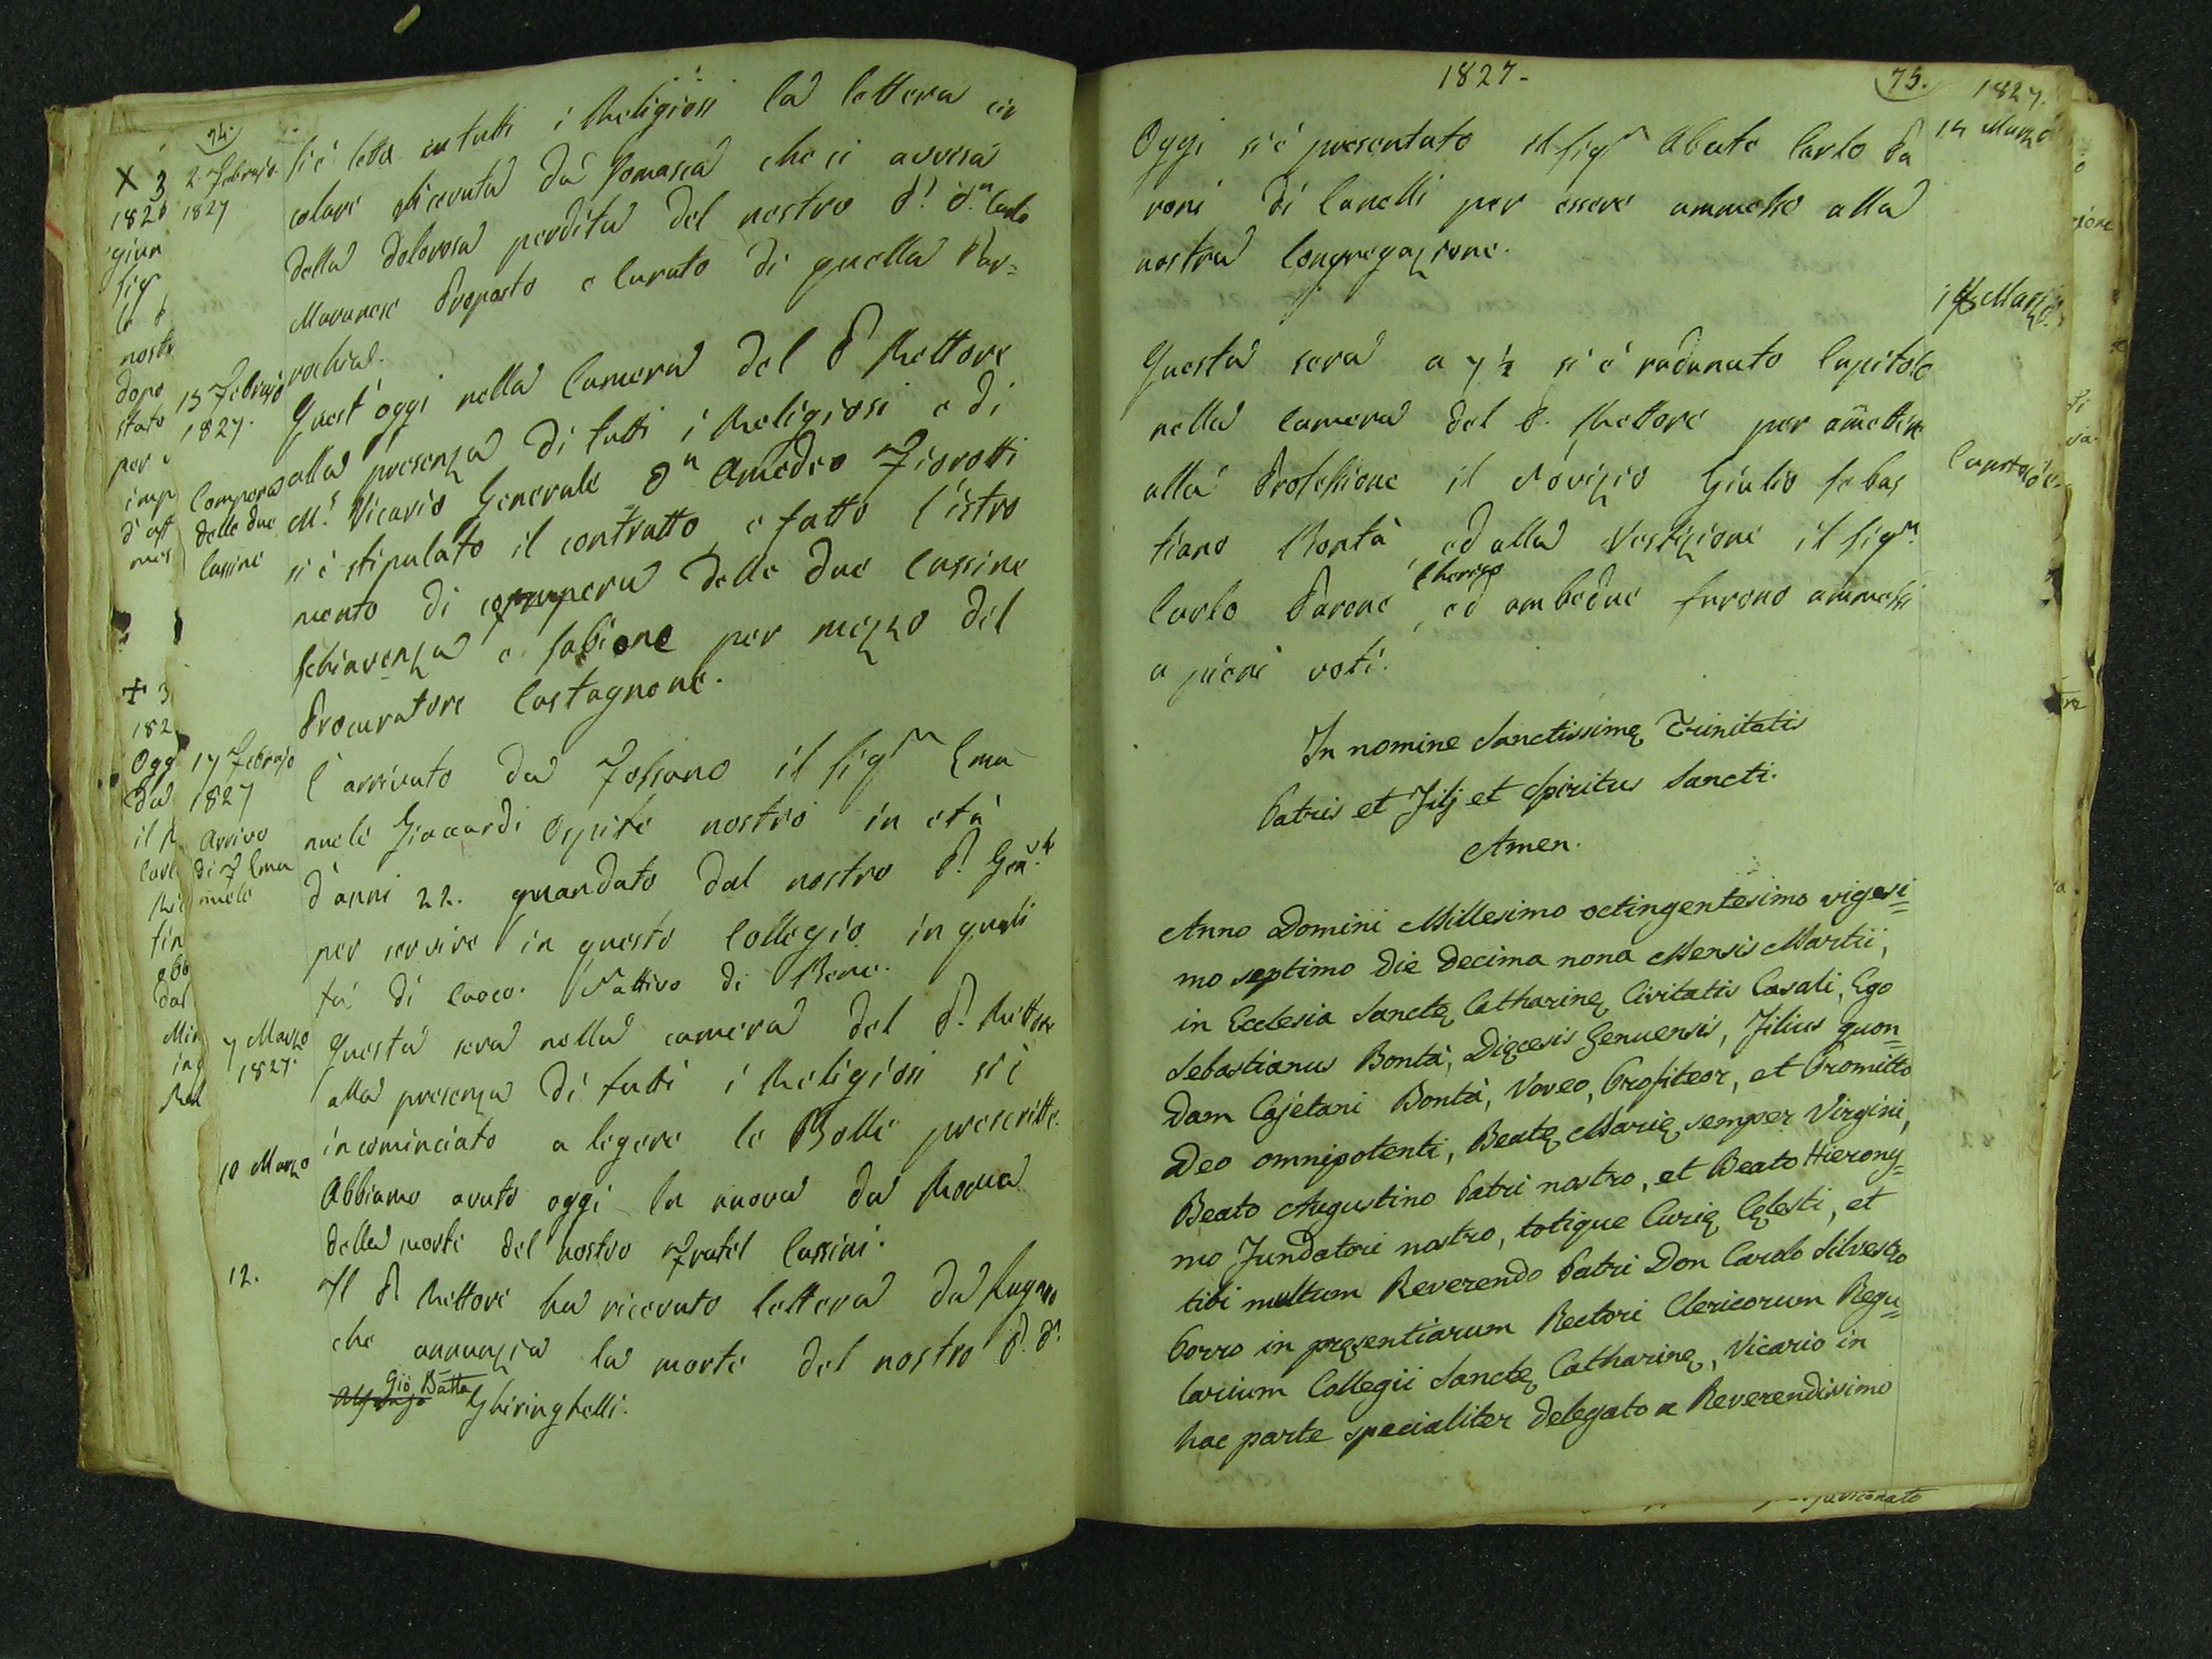 74.
2. Febrajo
1827
Si è letta a tutti i Religiosi la lettera cir
colare ricevuta da Somasca che ci avvisa
della dolorosa perdita del nostro P. D.n Carlo
Maranese Proposto e Curato di quella Par=
rochia.
15 Febrajo
1827.
Compera
delle due
Cassine
Quest'oggi nella Camera del P. Rettore
alla presenza di tutti i Religiosi e di
M.r Vicario Generale D.n Amedeo Fiorotti
si è stipulato il contratto, e fatto l'istro
mento di compera delle due Cassine
Schiavenza e Sabione per mezzo del
Procuratore Castagnone.
17 Febrajo
1827
Arrivo
di F. Ema
nuele
È arrivato da Fossano il Sig.r Ema
nuele Giaccardi Ospite nostro in età
d'anni 22. mandato dal nostro P. Gen.le
per servire in questo Collegio in quali
tà di cuoco. Nattivo di Bene.
7 Marzo
1827.
Questa sera nella camera del P. Rettore
alla presenza di tutti i Religiosi si è
incominciato a legere le Bolle prescritte.
10 Marzo
Abbiamo avuto oggi la nuova da Roma
della morte del nostro Fratel Cassini.
12.
Il P. Rettore ha ricevuto lettera da Lugano
che annunzia la morte del nostro P. D.
Gio Batta Ghiringhelli.
1827-
75.
1827.
14 Marzo
Oggi si è presentato il Sig.r Abate Carlo Pa
roni di Canelli per essere ammesso alla
nostra Congregazione.
Marzo
Questa sera a 7 1/2 si è radunato Capitolo
nella Camera del P. Rettore per amettere
alla Professione il Novizio Giulio Sebas
tiano Bontà, ed alla Vestizione il Sig.r
Carlo Parone Cherico, ed ambedue furono ammessi
a pieni voti.
In nomine Sanctissimę Trinitatis
Patris et Filj et Spiritus Sancti.
Amen.
Anno Domini Millesimo octingentesimo vigesi=
mo septimo Die Decima nona Mensis Martii,
in Ecclesia Sanctę Catharinę Civitatis Casali, Ego
Sebastianus Bontà, Dięcesis Genuensis, Filius quon=
dam Cajetani Bontà, Voveo, Profiteor, et Promitto
Deo omnipotenti, Beatę Marię semper Virgini,
Beato Augustino Patri nostro, et Beato Hierony=
mo Fundatori nostro, totique Curię Cęlesti, et
tibi multum Reverendo Patri Don Carolo Silvestro
Porro in pręsentiarum Rectori Clericorum Regu=
larium Collegii Sanctę Catharinę, Vicario in
hac parte specialiter delegato a Reverendissimo